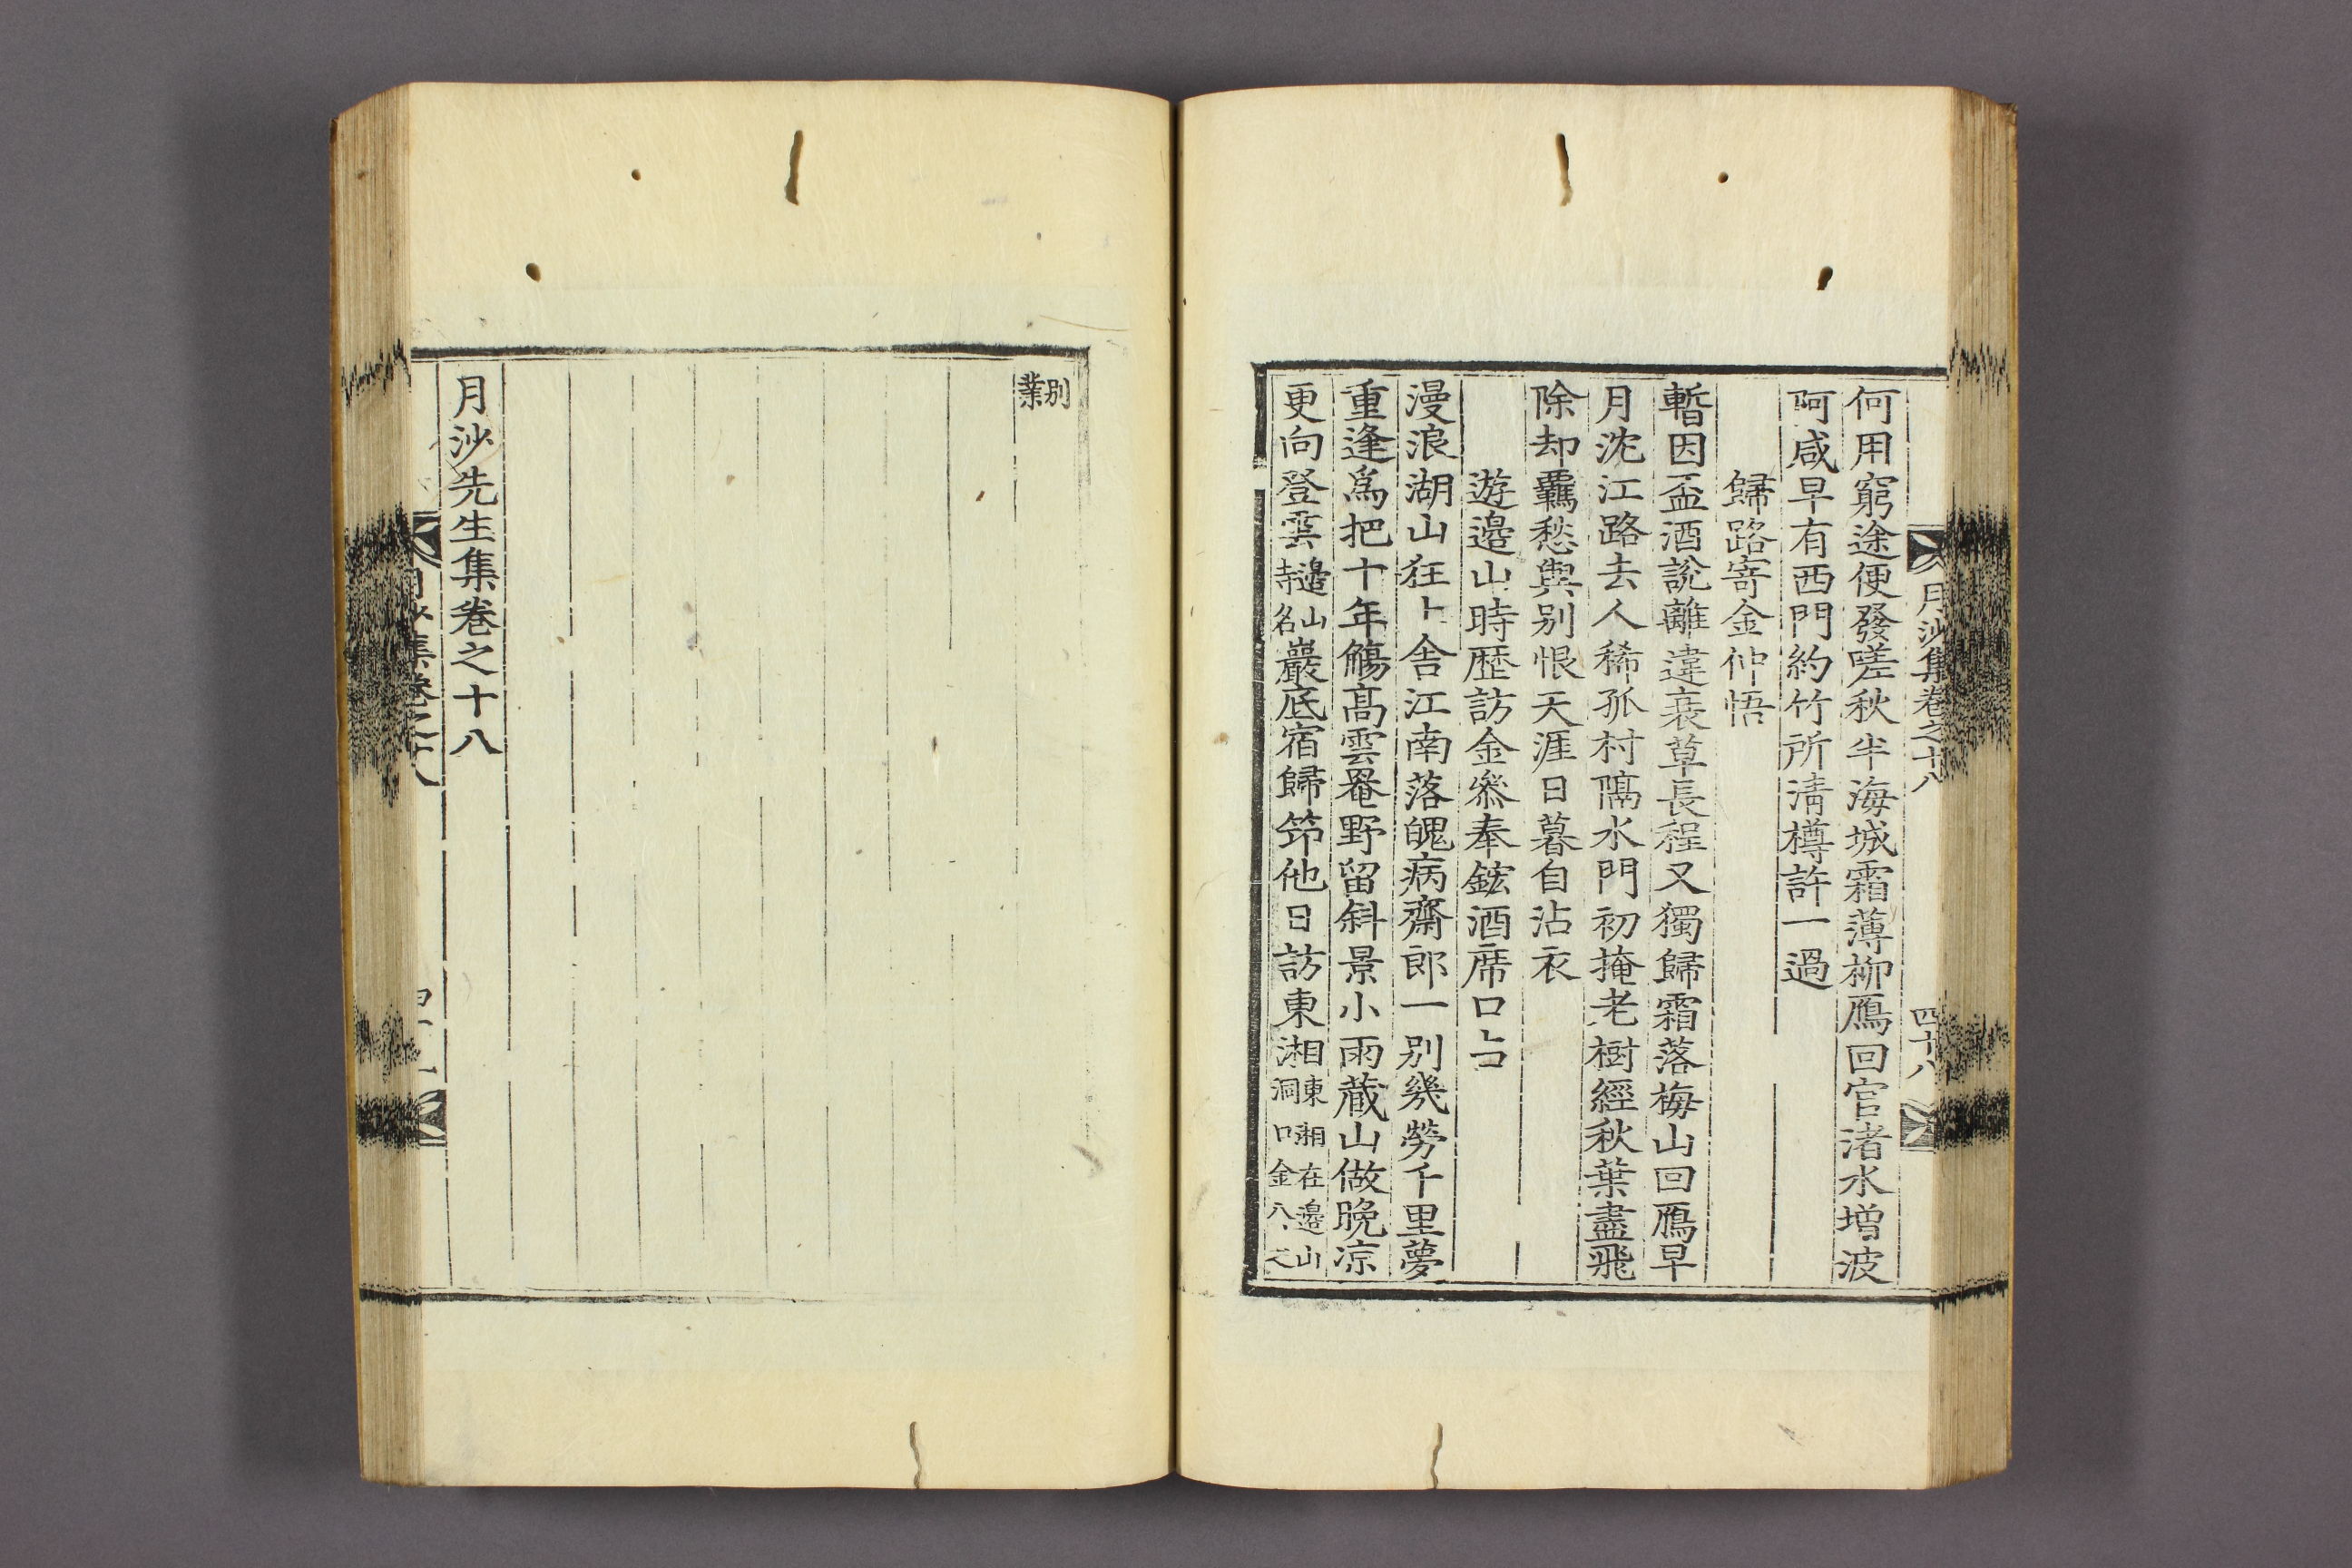 月沙集卷之十八 四十八
何用窮途便發嗟秋半海城霜薄柳鴈回官渚水增波
阿咸早有西門約竹所淸樽許一過
歸路寄金仲悟
暫因盃酒說離違衰草長程又獨歸霜落梅山回鴈早
月沈江路去人稀孤村隔水門初掩老樹經秋葉盡飛
除却羈愁與别恨天涯日暮自沾衣
遊邉山時歷訪金叅奉鋐酒席口占
漫浪湖山狂卜舍江南落魄病齋郎一别幾勞千里夢
重逢爲把十年觴高雲罨野留斜景小雨藏山做晩凉
更向登雲邉山寺名巖底宿歸笻他日訪東湘東湘在邉山洞口金八之
别業
月沙先生集卷之十八
月沙集卷之十八